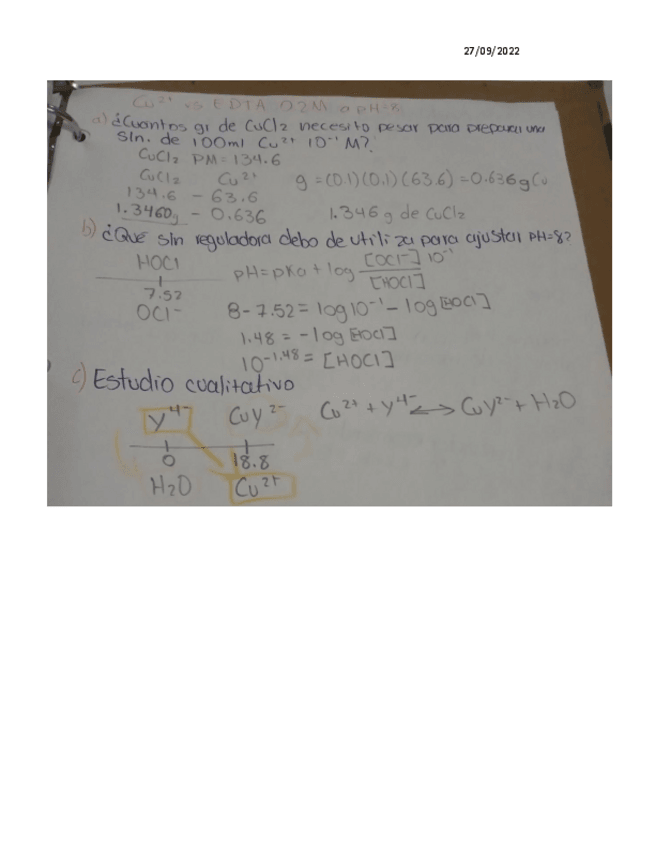 27/09/2022
Cu²⁺ vs EDTA 0.2M a pH=8
a) ¿Cuantos gr de CuCl₂ necesito pesar para preparar una
sln. de 100ml Cu²⁺ 10⁻¹ M?
CuCl₂ PM = 134.6
CuCl₂ Cu²⁺ g = (0.1)(0.1)(63.6) = 0.636g Cu
134.6 - 63.6
1.3460g - 0.636 1.346 g de CuCl₂
b) ¿Qué sln reguladora debo de utiliza para ajustar pH=8?
HOCl pH = pKa + log [OCl⁻] 10⁻¹ / [HOCl]
7.52
OCl⁻ 8 - 7.52 = log 10⁻¹ - log [HOCl]
1.48 = - log [HOCl]
10⁻¹·⁴⁸ = [HOCl]
c) Estudio cualitativo
Y⁴⁻ CuY²⁻ Cu²⁺ + Y⁴⁻ ⟷ CuY²⁻ + H₂O
0 18.8
H₂O Cu²⁺